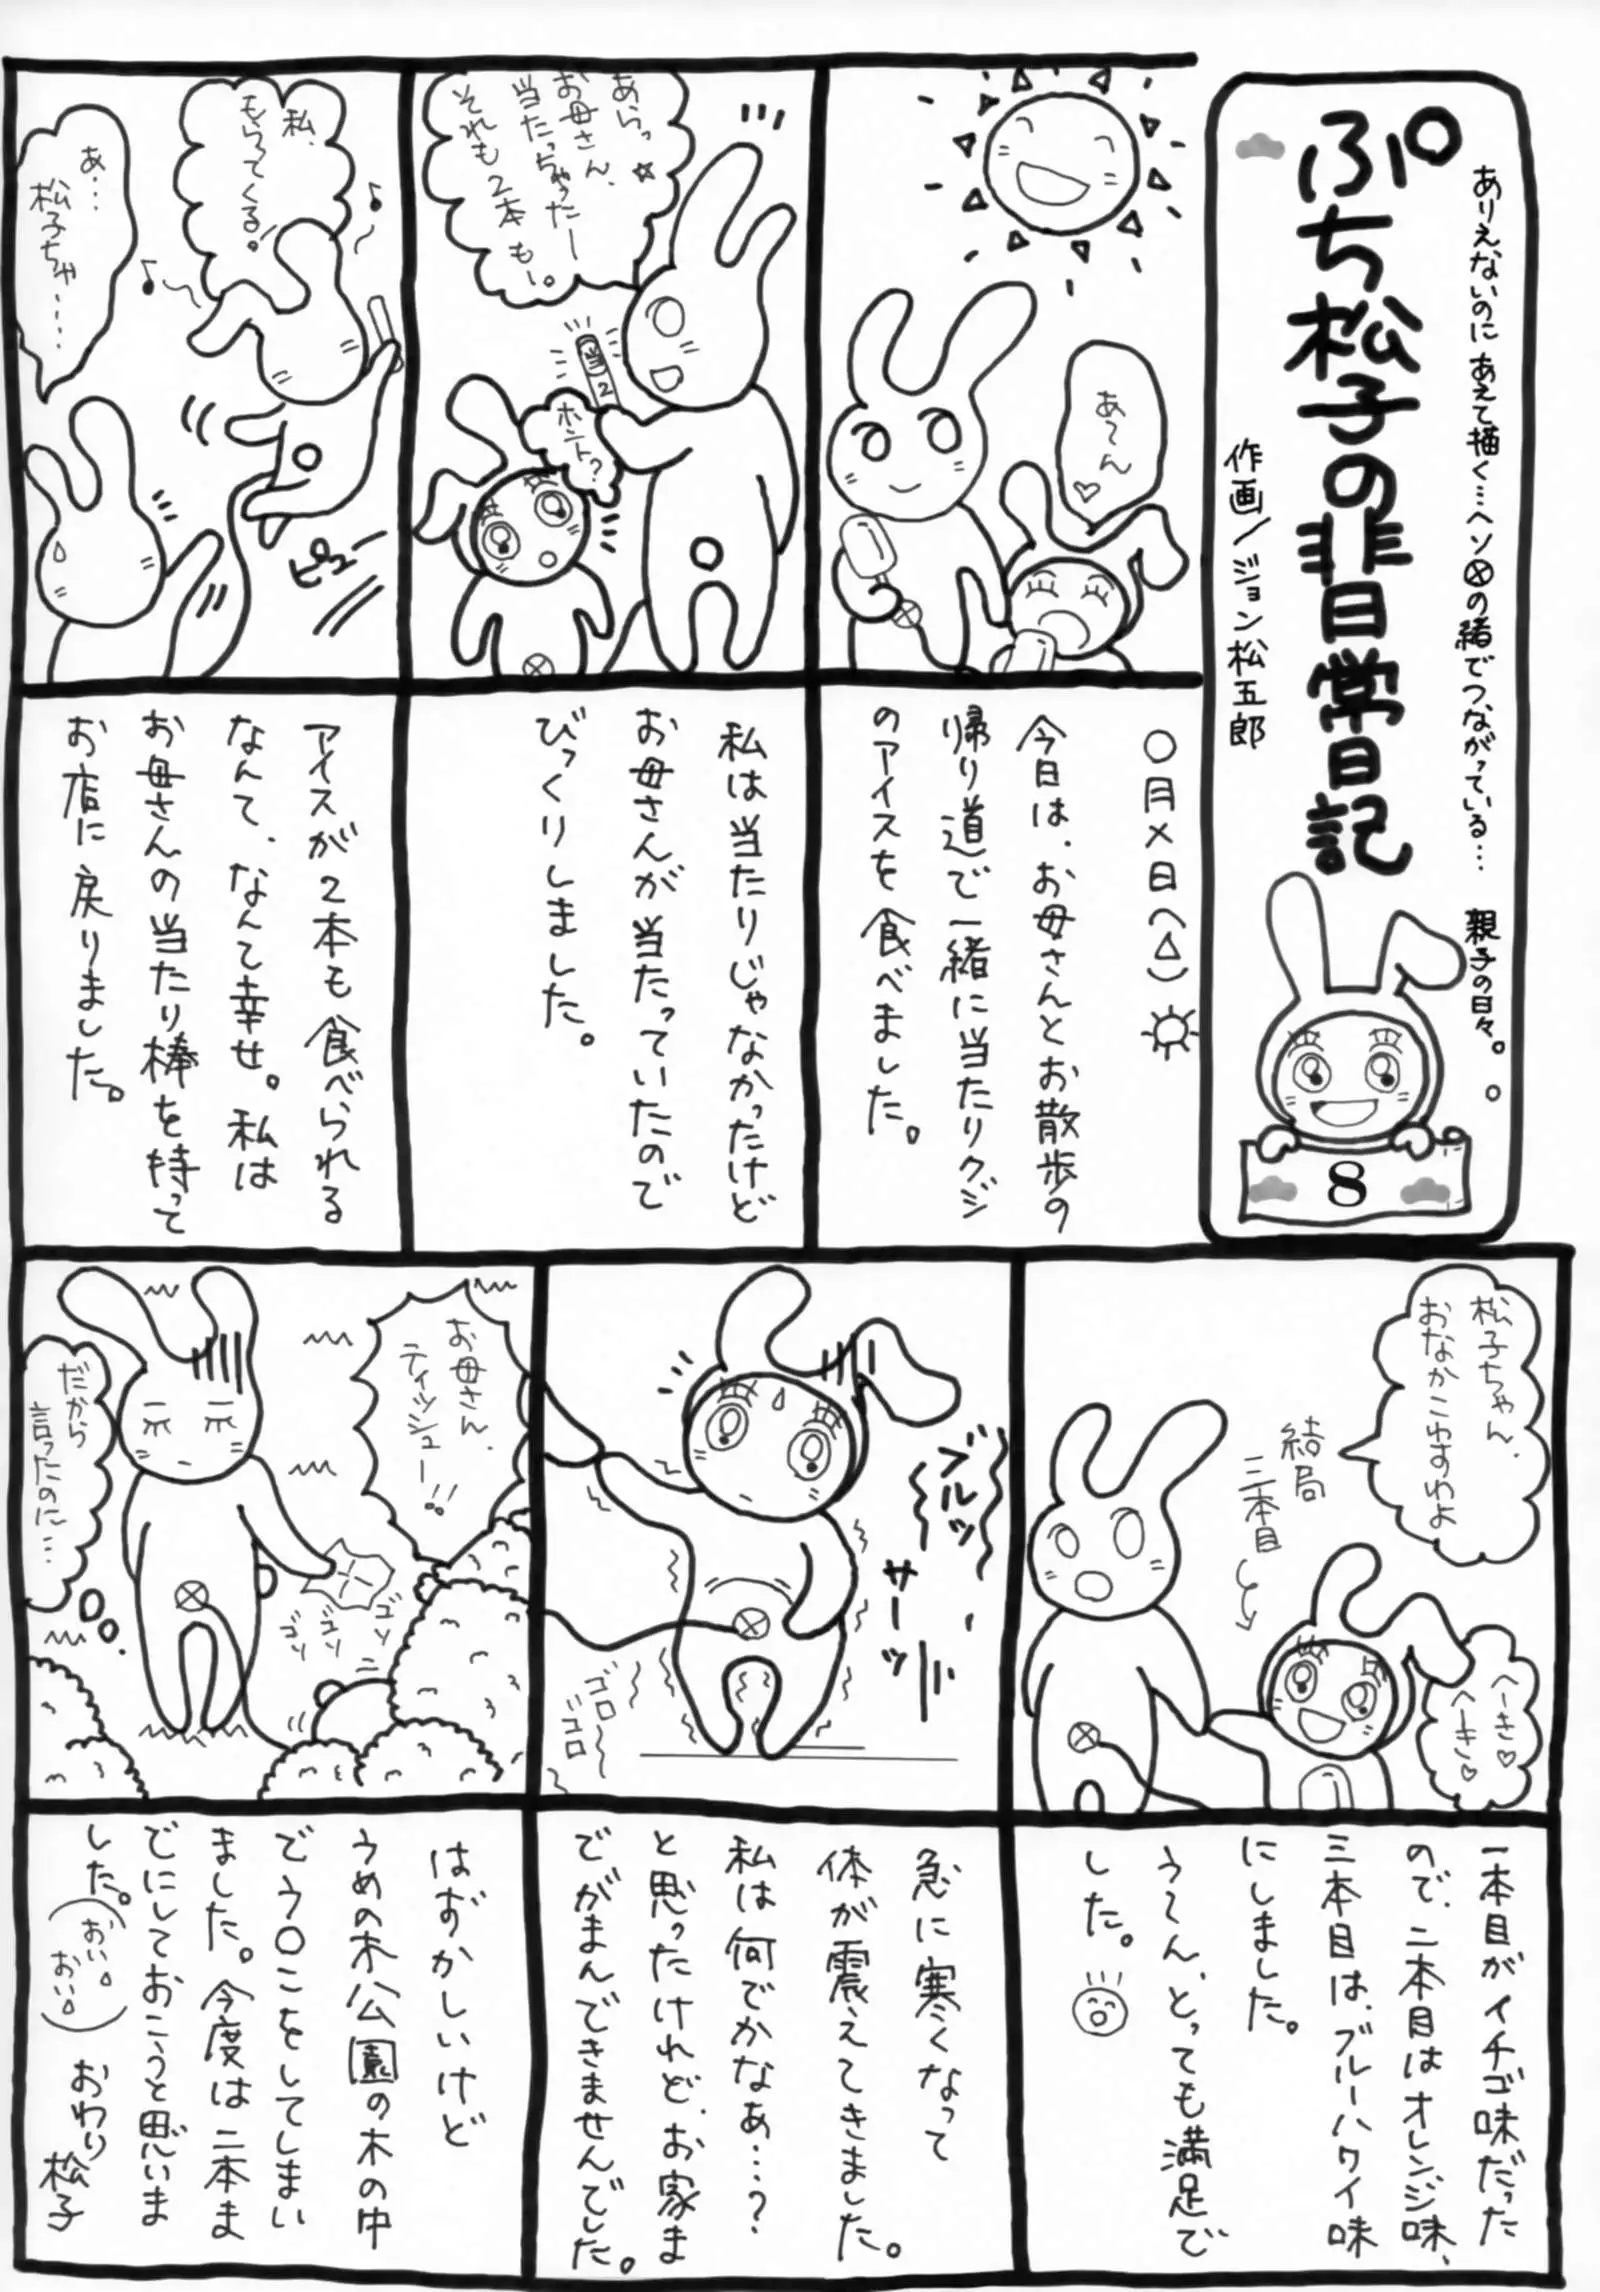 ありえないのに あえて描く…ヘソ⊗の緒でつながっている… 親子の日々。
ぷち松子の非日常日記
作画/ジョン松五郎
8
あ〜ん♡
〇月×日(△)☀
今日は、お母さんとお散歩の
帰り道で一緒に当たりクジ
のアイスを食べました。
あらっ☆
お母さん、
当たっちゃったー
それも2本もぉ。
当2
ホント?
私は当たりじゃなかったけど
お母さんが当たっていたので
びっくりしました。
私、
もらってくる。♪
ピュー
あ…
松子ちゃ……
アイスが2本も食べられる
なんて、なんて幸せ。私は
お母さんの当たり棒を持って
お店に戻りました。
松子ちゃん、
おなかこわすわよ
結局
三本目
へーき♡
へーき♡
一本目がイチゴ味だった
ので、二本目はオレンジ味、
三本目は、ブルーハワイ味
にしました。
う〜ん、とっても満足で
した。
ブルッ
サーッ
ゴロ〜
ゴロ
急に寒くなって
体が震えてきました。
私は何でかなあ…?
と思ったけれど、お家ま
でがまんできませんでした。
お母さん、
ティッシュー!!
ゴソ
ゴソ
ゴソ
だから
言ったのに…
はずかしいけど
うめの木公園の木の中
でウ〇こをしてしまい
ました。今度は二本ま
でにしておこうと思いま
した。(おいおい)
おわり
松子